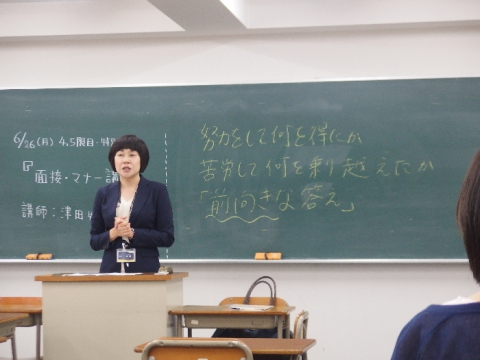 6/26(月) 4.5限目・特別
『面接・マナー講
講師：津田
努力をして何を得たか
苦労して何を乗り越えたか
「前向きな答え」